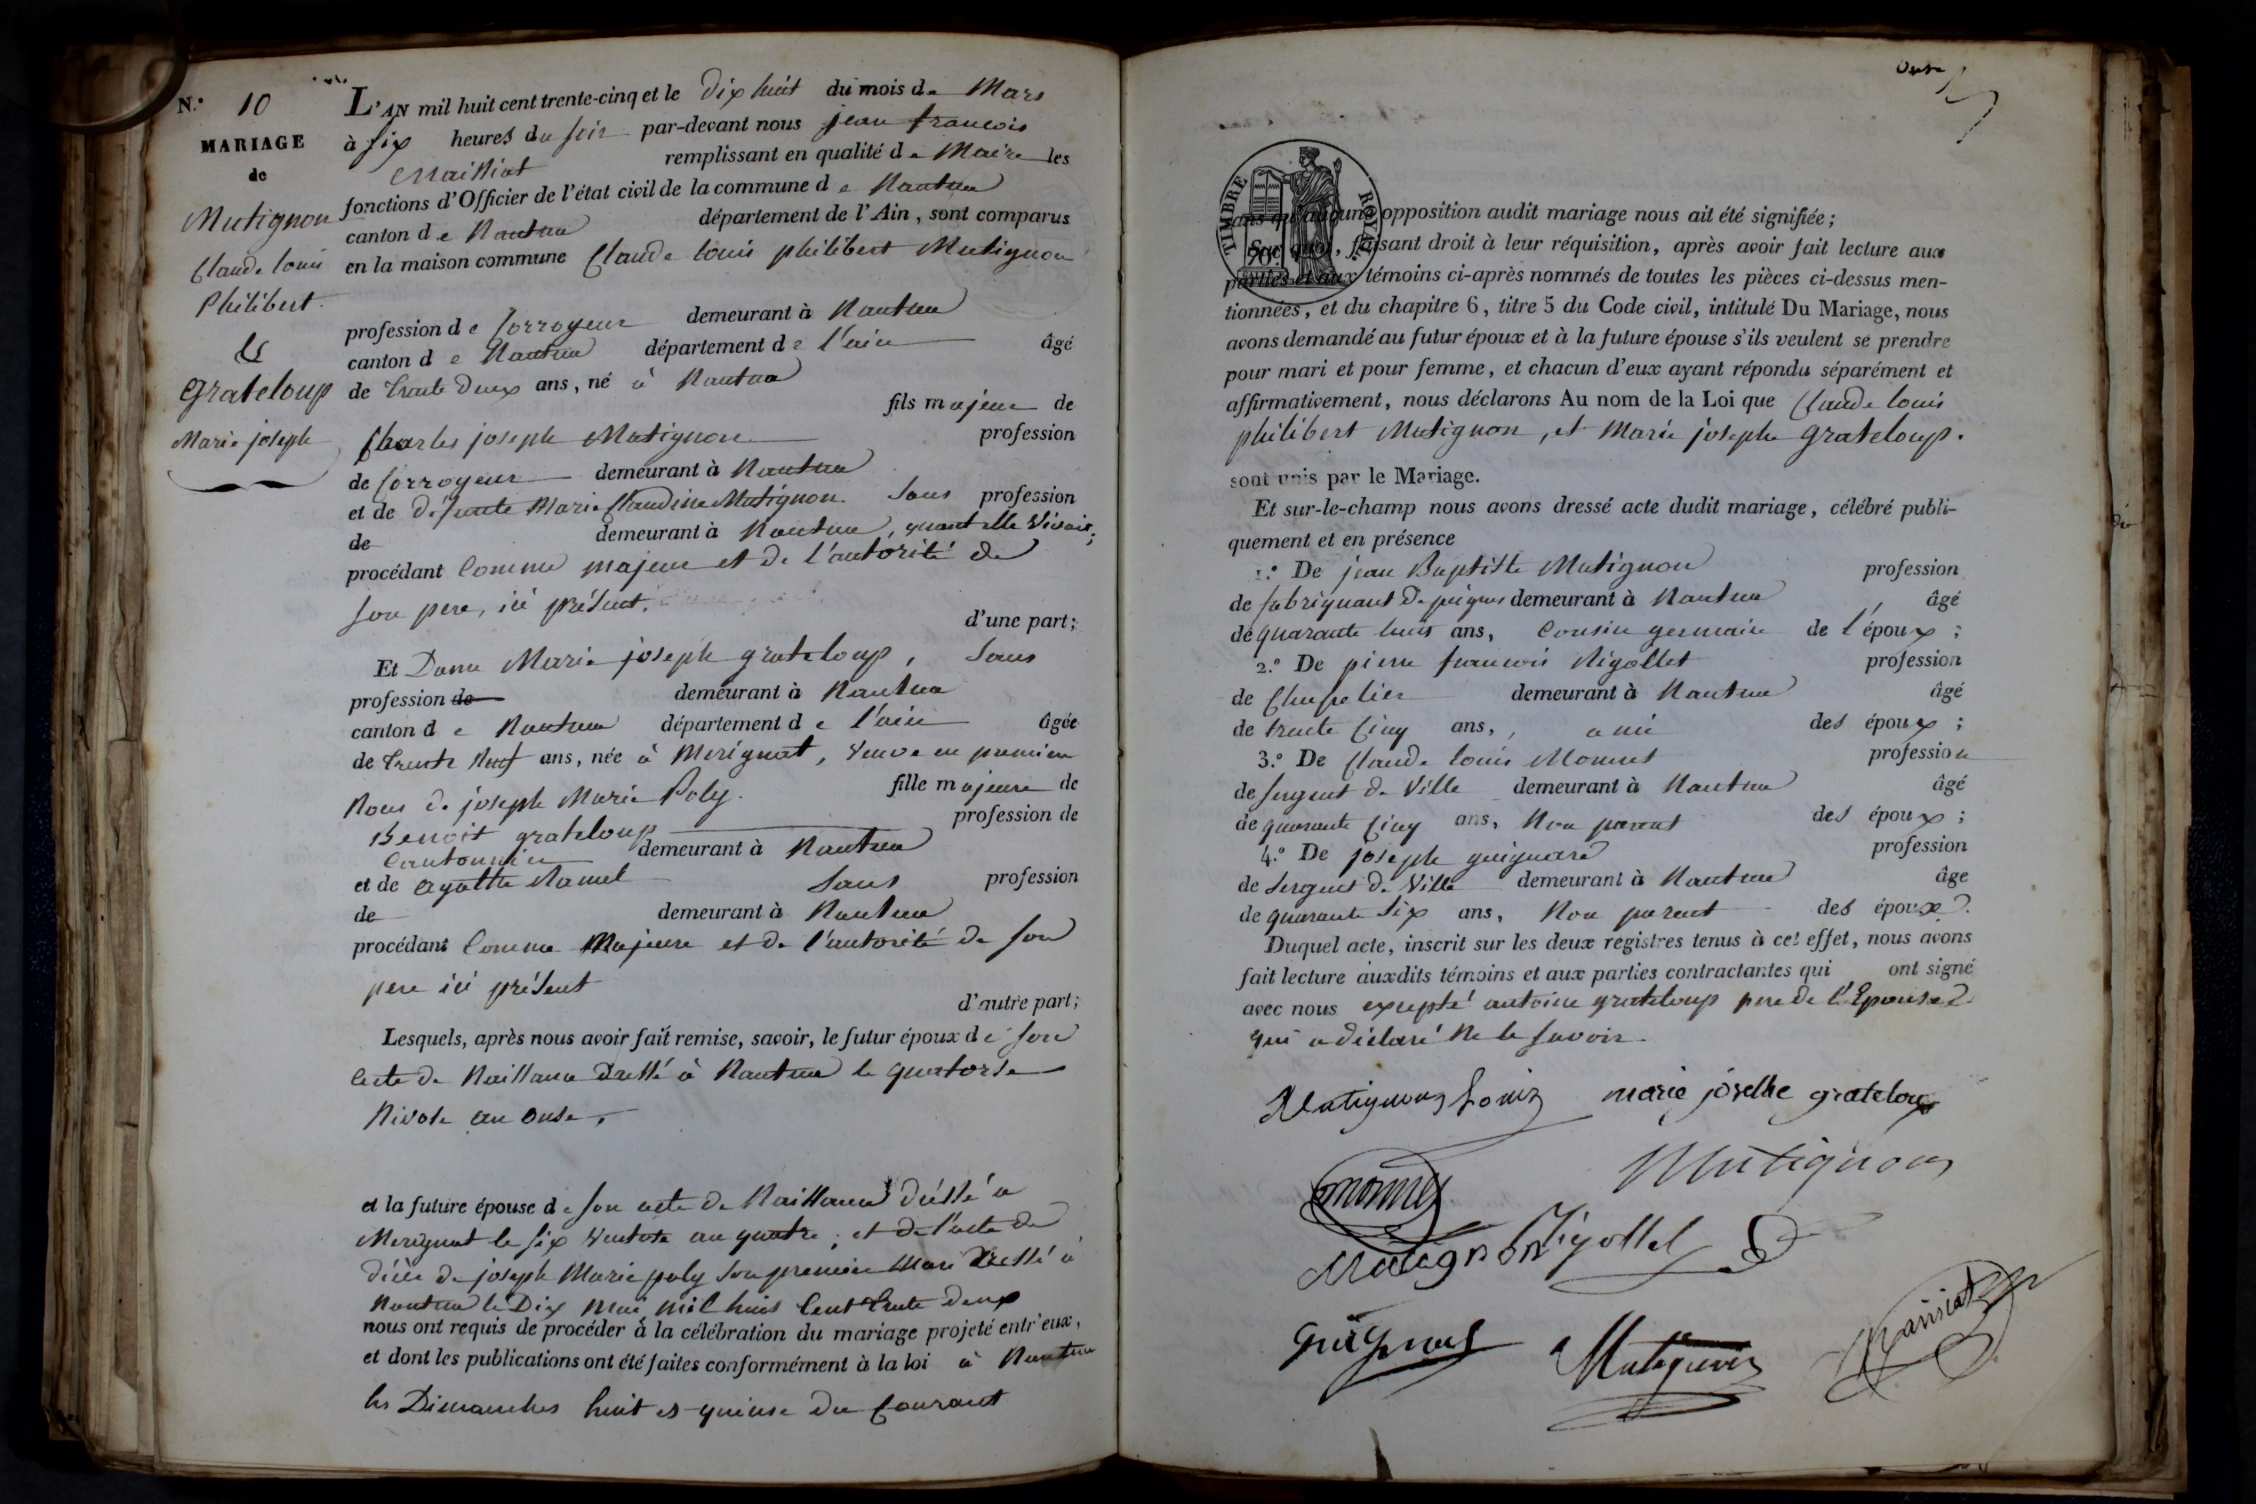 N.° 10
MARIAGE
de
Mutignon
Claude louis
Philibert.
&
grateloup
Marie joseph
L'AN mil huit cent trente-cinq et le dix huit du mois de Mars
à six heures du soir par-devant nous jean francois
remplissant en qualité de Maire les
fonctions d'Officier de l'état civil de la commune de Nantua
canton de Nantua département de l'Ain, sont comparus
en la maison commune Claude louis philibert Mutignon
profession de Corroyeur demeurant à Nantua
canton de Nantua département de l'ain âgé
de trente deux ans, né à Nantua
fils majeur de
Charles joseph Mutignon profession
de Corroyeur demeurant à Nantua
et de défunte Marie Claudine Mutignon sans profession
de demeurant à Nantua, quand elle vivait;
procédant Comme majeur et de l'autorité de
son pere, ici présent.
d'une part;
Et Dame Marie joseph grateloup, sans
profession de demeurant à Nantua
canton de Nantua département de l'ain âgée
de trente neuf ans, née à Merignat, veuve en premiere
Noces de joseph Marie Poly. fille majeure de
Benoit grateloup profession de
Cantonnier demeurant à Nantua
et de agathe Ramel sans profession
de demeurant à Nantua
procédant Comme Majeure et de l'autorité de son
pere ici présent
d'autre part;
Lesquels, après nous avoir fait remise, savoir, le futur époux de son
acte de Naissance dressé à Nantua le quatorse
Nivose an onse,
et la future épouse de son acte de Naissance dréssé a
Merignat le six ventose an quatre; et de l'acte de
décès de joseph Marie poly son premier Mari dressé à
Nantua le Dix Mai mil huit Cent trente deux
nous ont requis de procéder à la célébration du mariage projeté entr'eux,
et dont les publications ont été faites conformément à la loi à Nantua
les Dimanches huit et quinse du Courant
onse
TIMBRE ROYAL
sans qu'aucune opposition audit mariage nous ait été signifiée;
Sur quoi, faisant droit à leur réquisition, après avoir fait lecture aux
parties et aux témoins ci-après nommés de toutes les pièces ci-dessus men-
tionnées, et du chapitre 6, titre 5 du Code civil, intitulé Du Mariage, nous
avons demandé au futur époux et à la future épouse s'ils veulent se prendre
pour mari et pour femme, et chacun d'eux ayant répondu séparément et
affirmativement, nous déclarons Au nom de la Loi que Claude louis
philibert Mutignon, et Marie josephe grateloup.
sont unis par le Mariage.
Et sur-le-champ nous avons dressé acte dudit mariage, célébré publi-
quement et en présence
1.° De jean Baptiste Mutignon profession
de fabriquant de peignes demeurant à Nantua âgé
de quarante huit ans, Cousin germain de l'époux;
2.° De pierre francois Rigollet profession
de Chapelier demeurant à Nantua âgé
de trente Cinq ans, ami des époux;
3.° De Claude louis Monnet profession
de sergent de ville demeurant à Nantua âgé
de quarante Cinq ans, Non parent des époux;
4.° De joseph guignard profession
de sergent de ville demeurant à Nantua âgé
de quarante six ans, Non parent des époux.
Duquel acte, inscrit sur les deux registres tenus à cet effet, nous avons
fait lecture auxdits témoins et aux parties contractantes qui ont signé
avec nous excepté antoine grateloup pere de l'Epouse
qui a déclaré Ne le savoir.
Mutignon Louis marie josephe grateloup
Mutignon
monnet
Rigollet
Mutignon
Guignard
Mutignon